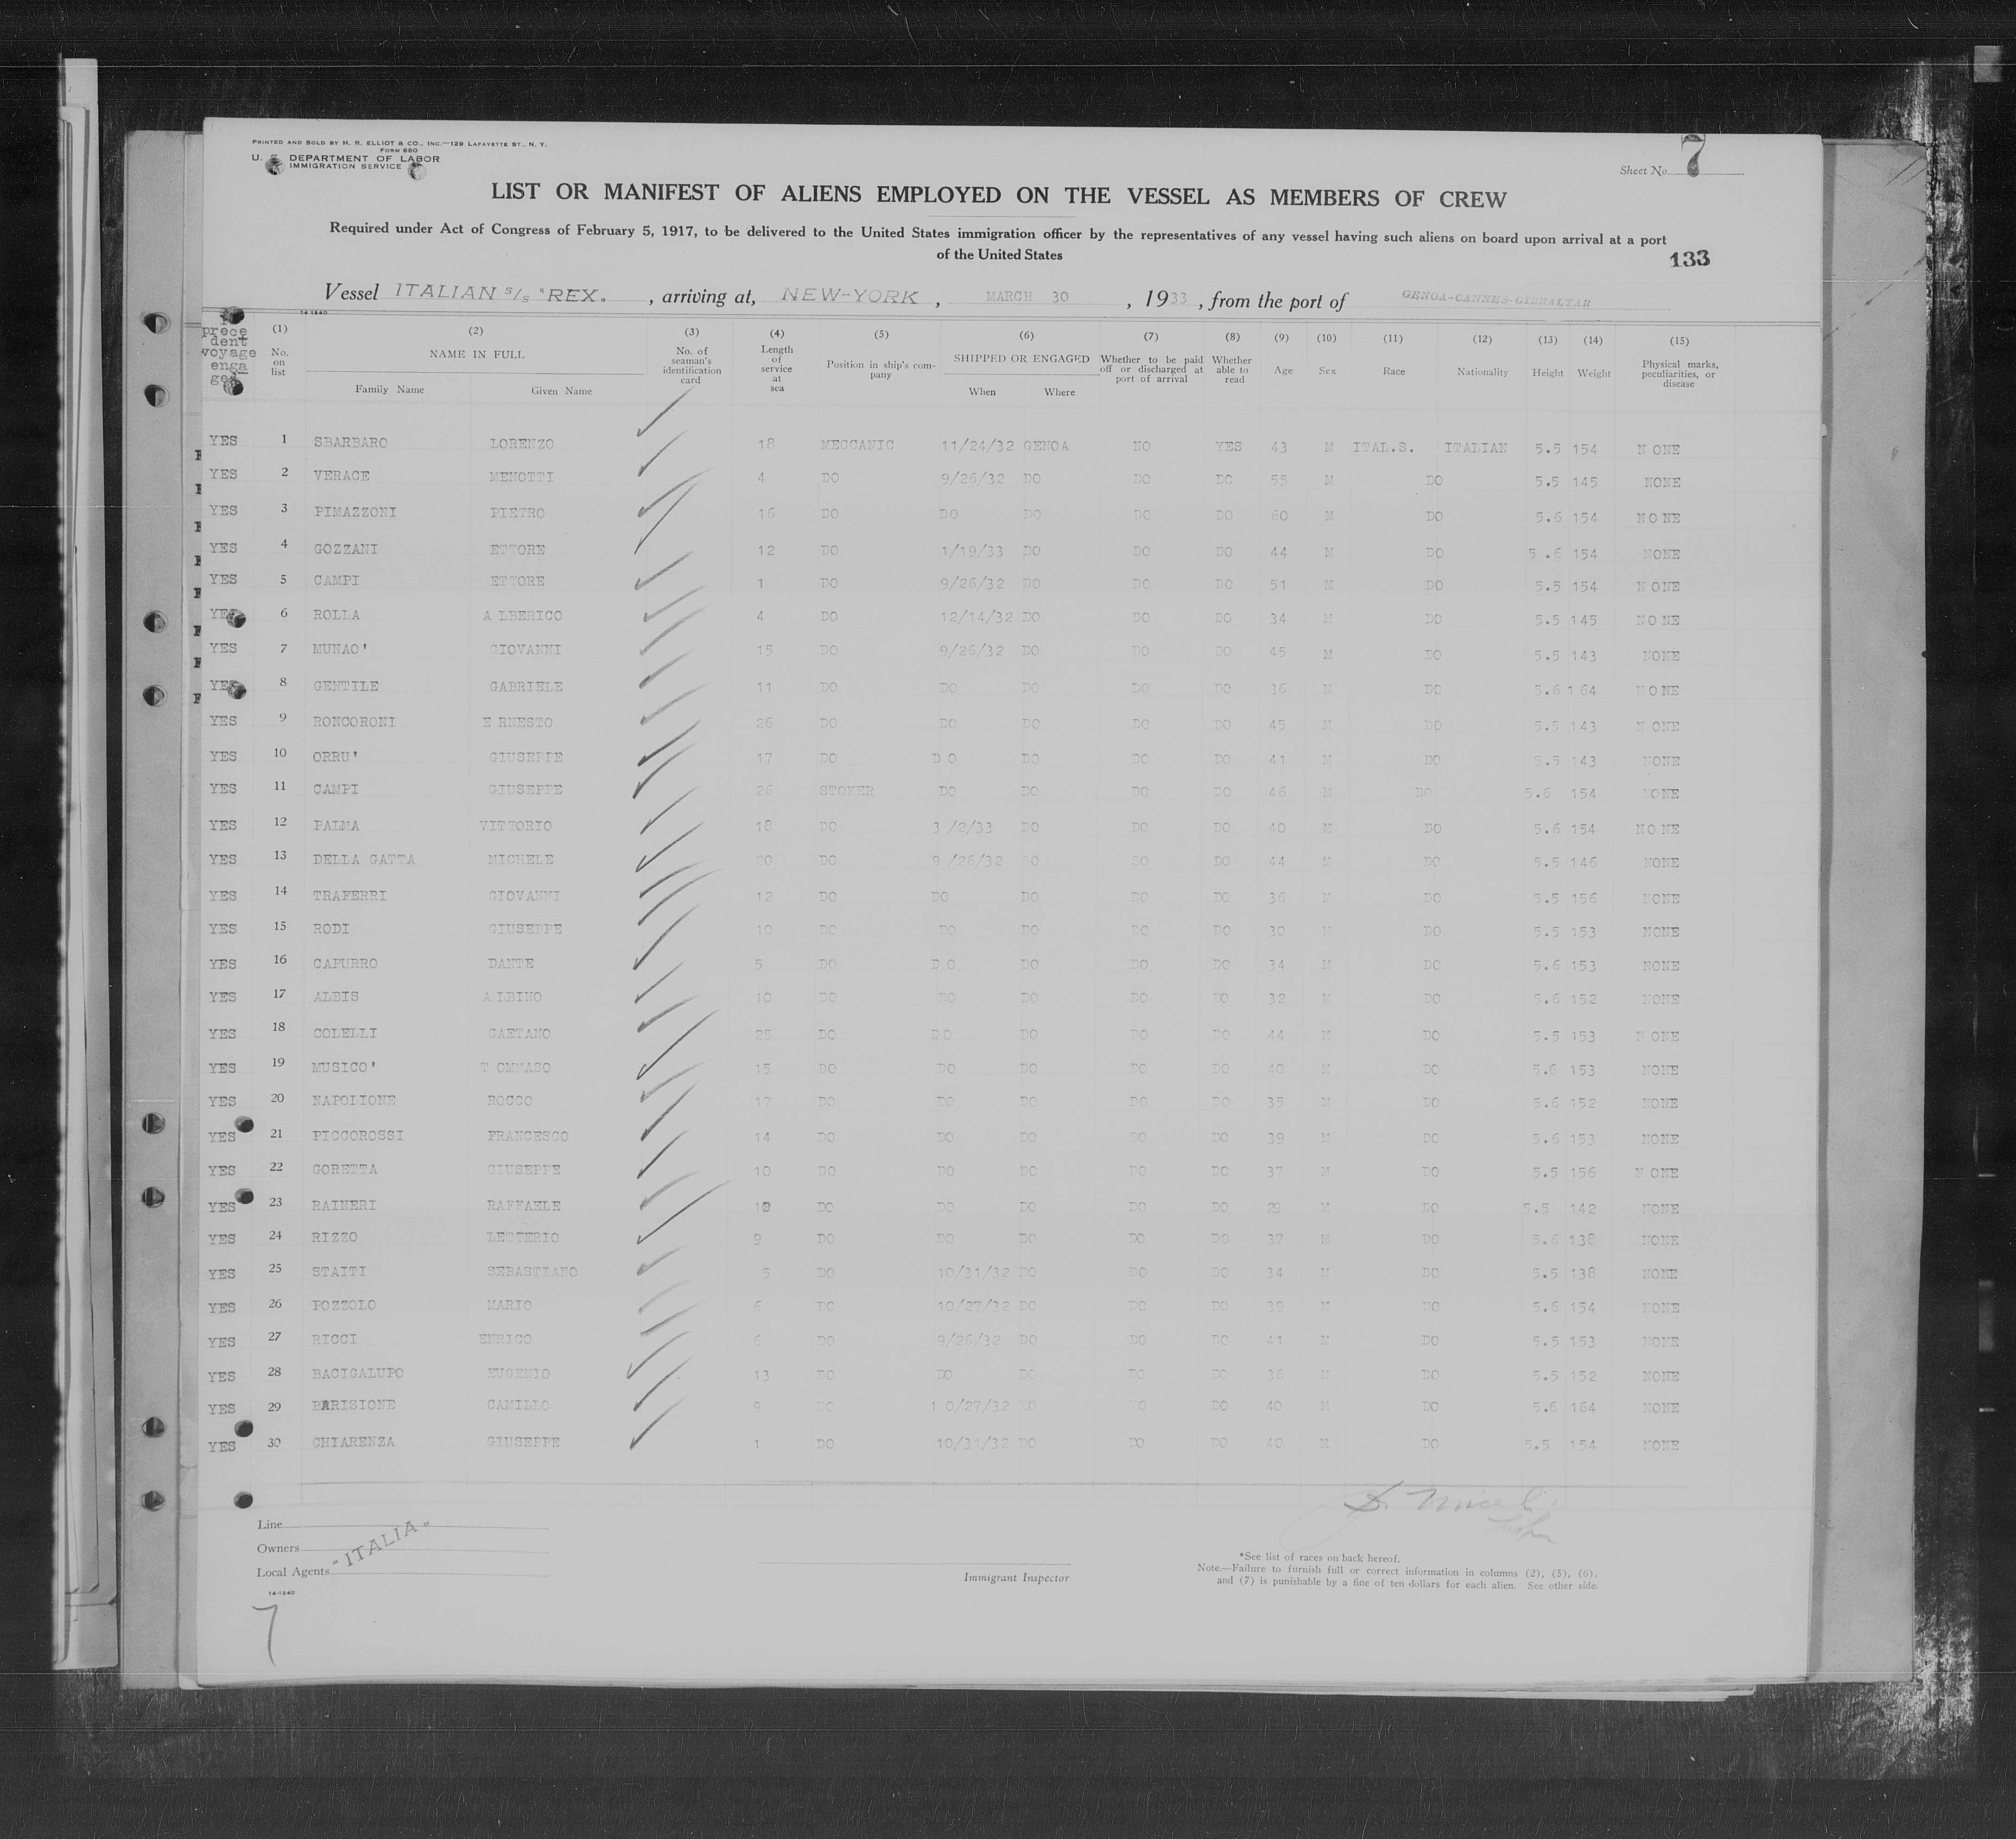 PRINTED AND SOLD BY H. R. ELLIOT & CO., INC.—129 LAFAYETTE ST., N. Y.
FORM 680
U. S. DEPARTMENT OF LABOR
IMMIGRATION SERVICE
Sheet No. 7
LIST OR MANIFEST OF ALIENS EMPLOYED ON THE VESSEL AS MEMBERS OF CREW
Required under Act of Congress of February 5, 1917, to be delivered to the United States immigration officer by the representatives of any vessel having such aliens on board upon arrival at a port
of the United States
133
Vessel ITALIAN S/S "REX. , arriving at, NEW-YORK , MARCH 30 , 1933 , from the port of GENOA-CANNES-GIBRALTAR
14-1240
prece dent voyage enga ged (1) No. on list (2) NAME IN FULL Family Name Given Name (3) No. of seaman's identification card (4) Length of service at sea (5) Position in ship's company (6) SHIPPED OR ENGAGED When Where (7) Whether to be paid off or discharged at port of arrival (8) Whether able to read (9) Age (10) Sex (11) Race (12) Nationality (13) Height (14) Weight (15) Physical marks, peculiarities, or disease
YES 1 SBARBARO LORENZO 18 MECCANIC 11/24/32 GENOA NO YES 43 M ITAL.S. ITALIAN 5.5 154 N ONE
YES 2 VERACE MENOTTI 4 DO 9/26/32 DO DO DO 55 M DO 5.5 145 NONE
YES 3 PIMAZZONI PIETRO 16 DO DO DO DO DO 60 M DO 5.6 154 NO NE
YES 4 GOZZANI ETTORE 12 DO 1/19/33 DO DO DO 44 M DO 5 .6 154 NONE
YES 5 CAMPI ETTORE 1 DO 9/26/32 DO DO DO 51 M DO 5.5 154 N ONE
YES 6 ROLLA A LBERICO 4 DO 12/14/32 DO DO DO 34 M DO 5.5 145 NO NE
YES 7 MUNAO' GIOVANNI 15 DO 9/26/32 DO DO DO 45 M DO 5.5 143 NONE
YES 8 GENTILE GABRIELE 11 DO DO DO DO DO 36 M DO 5.6 1 64 NO NE
YES 9 RONCORONI E RNESTO 26 DO DO DO DO DO 45 M DO 5.5 143 N ONE
YES 10 ORRU' GIUSEPPE 17 DO D O DO DO DO 41 M DO 5.5 143 NONE
YES 11 CAMPI GIUSEPPE 26 STOKER DO DO DO DO 46 M DO 5.6 154 NONE
YES 12 PALMA VITTORIO 18 DO 3 /2/33 DO DO DO 40 M DO 5.6 154 NO NE
YES 13 DELLA GATTA MICHELE 20 DO 9 /26/32 DO DO DO 44 M DO 5.5 146 NONE
YES 14 TRAFERRI GIOVANNI 12 DO DO DO DO DO 36 M DO 5.5 156 NONE
YES 15 RODI GIUSEPPE 10 DO DO DO DO DO 30 M DO 5.5 153 NONE
YES 16 CAPURRO DANTE 5 DO D O DO DO DO 34 M DO 5.6 153 NONE
YES 17 ALBIS A LBINO 10 DO DO DO DO DO 32 M DO 5.6 152 NONE
YES 18 COLELLI GAETANO 25 DO DO DO DO DO 44 M DO 5.5 153 N ONE
YES 19 MUSICO' T OMMASO 15 DO DO DO DO DO 40 M DO 5.6 153 NONE
YES 20 NAPOLIONE ROCCO 17 DO DO DO DO DO 35 M DO 5.6 152 NONE
YES 21 PICCOROSSI FRANCESCO 14 DO DO DO DO DO 39 M DO 5.6 153 NONE
YES 22 GORETTA GIUSEPPE 10 DO DO DO DO DO 37 M DO 5.5 156 N ONE
YES 23 RAINERI RAFFAELE DO DO DO DO DO 29 M DO 5.5 142 NONE
YES 24 RIZZO LETTERIO 9 DO DO DO DO DO 37 M DO 5.6 138 NONE
YES 25 STAITI SEBASTIANO 5 DO 10/31/32 DO DO DO 34 M DO 5.5 138 NONE
YES 26 POZZOLO MARIO 6 DO 10/27/32 DO DO DO 39 M DO 5.6 154 NONE
YES 27 RICCI ENRICO 6 DO 9/26/32 DO DO DO 41 M DO 5.5 153 NONE
YES 28 BACIGALUPO EUGENIO 13 DO DO DO DO DO 36 M DO 5.5 152 NONE
YES 29 BARISIONE CAMILLO 9 DO 1 0/27/32 DO DO DO 40 M DO 5.6 164 NONE
YES 30 CHIARENZA GIUSEPPE 1 DO 10/31/32 DO DO DO 40 M DO 5.5 154 NONE
Line
Owners
Local Agents "ITALIA"
Immigrant Inspector
*See list of races on back hereof.
Note.—Failure to furnish full or correct information in columns (2), (5), (6),
and (7) is punishable by a fine of ten dollars for each alien. See other side.
14-1240
7